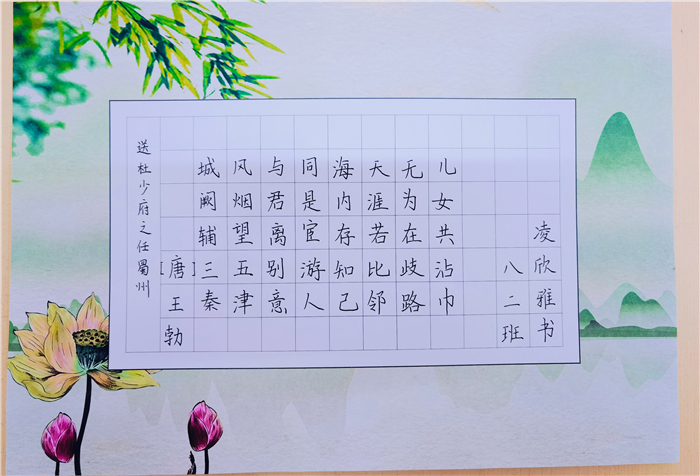 送杜少府之任蜀州
[唐]王勃
城阙辅三秦
风烟望五津
与君离别意
同是宦游人
海内存知己
天涯若比邻
无为在歧路
儿女共沾巾
八二班
凌欣雅书